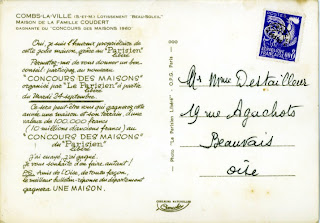 COMBS-LA-VILLE (S.-et-M.) LOTISSEMENT "BEAU-SOLEIL"
MAISON DE LA FAMILLE COUDERT
GAGNANTE DU "CONCOURS DES MAISONS 1960"
Oui, je suis l'heureux propriétaire de
cette jolie maison, grâce au "Parisien"
libéré
Permettez-moi de vous donner un bon
conseil : participez au nouveau
"CONCOURS DES MAISONS"
organisé par "Le Parisien" à partir
libéré
du Mardi 24 septembre.
Ce sera peut-être vous qui gagnerez cette
année une maison, et son terrain, d'une
valeur de 100.000 francs
(10 millions d'anciens francs) au
"CONCOURS DES MAISONS"
du "Parisien"
libéré
j'ai essayé, j'ai gagné
je vous souhaite d'en faire autant !
PS. Amis de l'Oise, de toute façon,
le meilleur bulletin-réponse du département
gagnera UNE MAISON.
Photo "Le Parisien Libéré" - O.P.G. Paris
Mr Mme Destailleur
19 rue Agachots
Beauvais
Oise